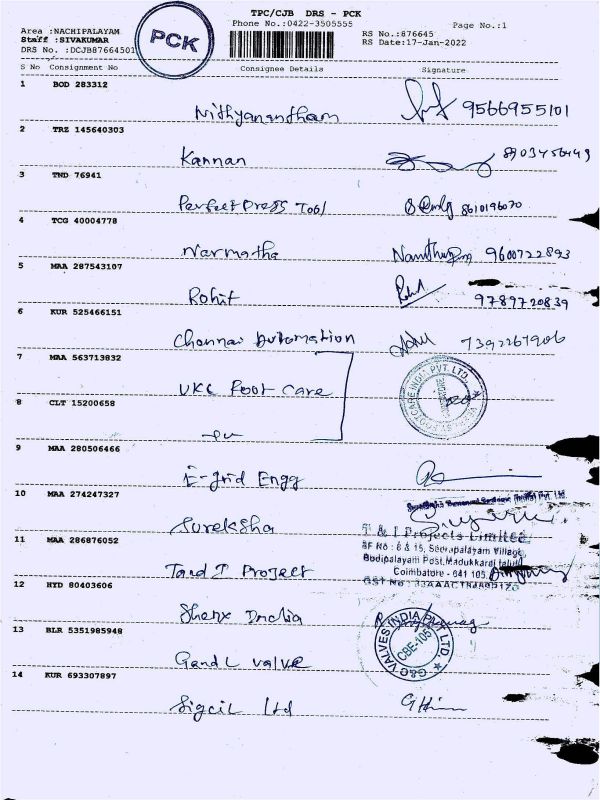 TPC/CJB DRS - PCK
Phone No.:0422-3505555
Page No.:1
Area :NACHIPALAYAM
Staff :SIVAKUMAR
DRS No. :DCJB87664501
PCK
RS No.:876645
RS Date:17-Jan-2022
S No Consignment No Consignee Details Signature
1 BOD 283312
Nithyanantham 9566955101
2 TRZ 145640303
Kannan 8903456449
3 TND 76941
Perfect Press Tool 8610196070
4 TCG 40004778
Narmatha 9600722893
5 MAA 287543107
Rohit Rohit 9789720839
6 KUR 525466151
Chennai Automation 7392267906
7 MAA 563713832
VKC Foot Care
8 CLT 15200658
9 MAA 280506466
E-grid Engg
10 MAA 274247327
Sureksha
11 MAA 286876052
T and I Project
T & I Projects Limited
SF No : 6 & 15, Seerapalayam Village,
Bodipalayam Post, Madukkarai taluk
Coimbatore - 641 105.
12 HYD 80403606
Shenx India
13 BLR 5351985948
G and L valve
G&O VALVES INDIA PVT LTD
CBE-105
14 KUR 693307897
Sigcil Ltd